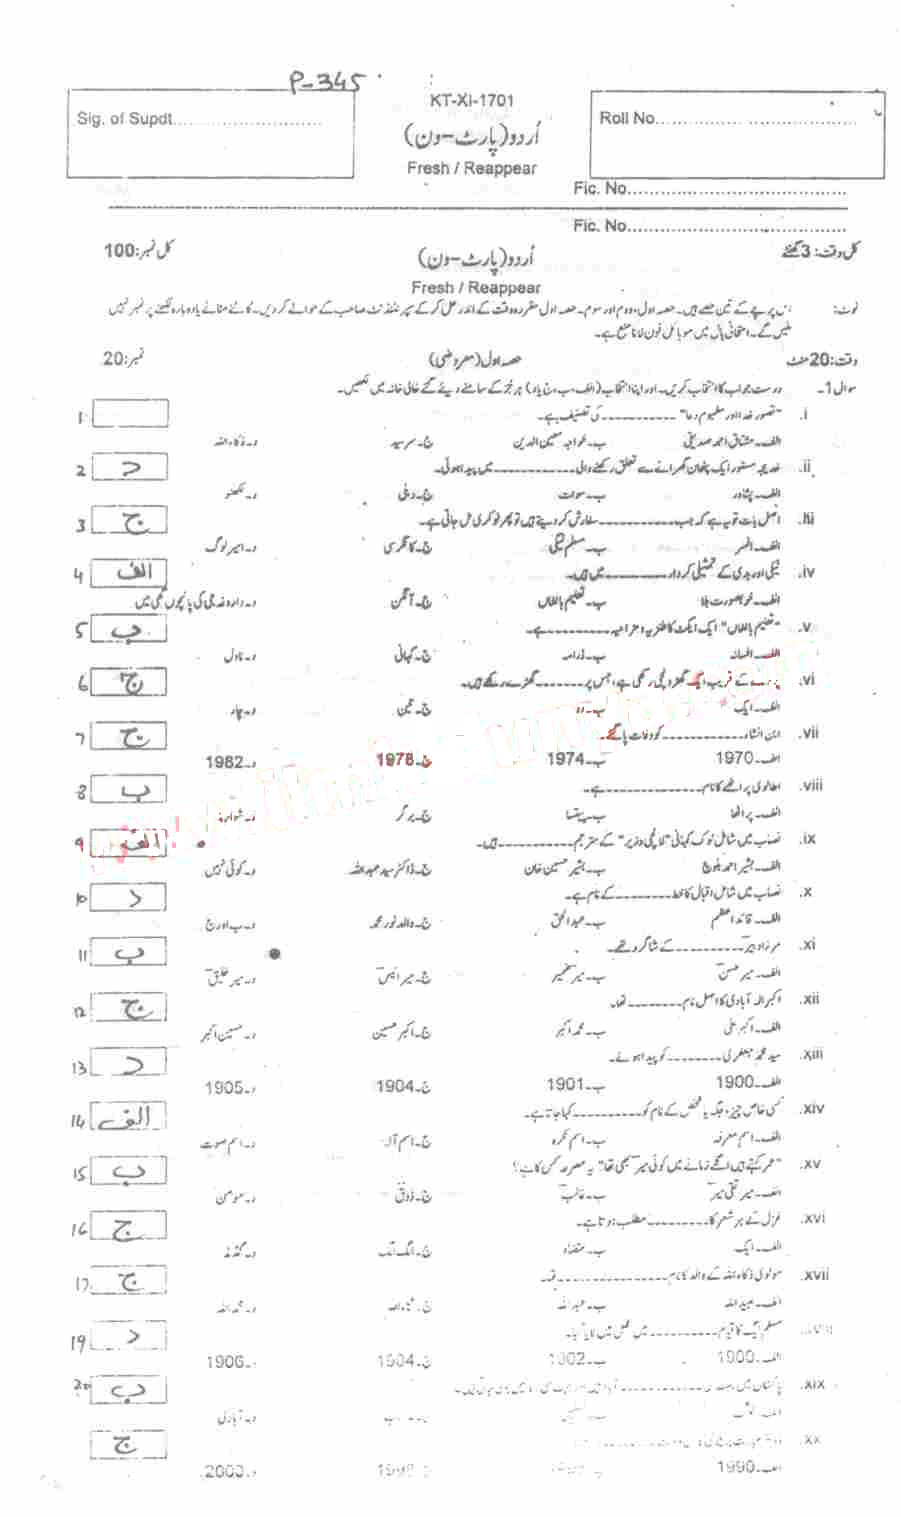 P-345
KT-XI-1701
Sig. of Supdt..........................
Roll No............... ...................
اُردو (پارٹ-ون)
Fresh / Reappear
Fic. No.......................................
Fic. No.......................................
کل وقت: 3 گھنٹے
اُردو (پارٹ-ون)
کل نمبر: 100
Fresh / Reappear
نوٹ: اس پرچے کے تین حصے ہیں۔ حصہ اول، دوم اور سوم۔ حصہ اول مقررہ وقت کے اندر حل کر کے سپرنٹنڈنٹ صاحب کے حوالے کر دیں۔ کاٹنے مٹانے یا دوبارہ لکھنے پر نمبر نہیں
ملیں گے۔ امتحانی ہال میں موبائل فون لانا منع ہے۔
وقت: 20 منٹ
حصہ اول (معروضی)
نمبر: 20
سوال 1۔ درست جواب کا انتخاب کریں۔ اور اپنا انتخاب (الف، ب، ج یا د) ہر جُز کے سامنے دیئے گئے خالی خانہ میں لکھیں۔
i. "تصور خدا اور مفہوم دعا" ـــــــــــ کی تصنیف ہے۔
1
الف۔ مشتاق احمد صدیقی ب۔ خواجہ معین الدین ج۔ سرسید د۔ ذکاء اللہ
ii. خدیجہ مستور ایک پٹھان گھرانے سے تعلق رکھنے والی ـــــــــــ میں پیدا ہوئی۔
2 د
الف۔ پشاور ب۔ سوات ج۔ دہلی د۔ لکھنو
iii. اصل بات تو یہ ہے کہ جب ـــــــــــ سفارش کر دیتے ہیں تو پھر نوکری مل جاتی ہے۔
3 ج
الف۔ افسر ب۔ مسلم لیگی ج۔ کانگرسی د۔ امیر لوگ
iv. نیکی اور بدی کے تمثیلی کردار ـــــــــــ میں ہیں۔
4 الف
الف۔ خوبصورت بلا ب۔ تعلیم بالغاں ج۔ آنگن د۔ دارہ خدجی کی پانچوں گھی میں
v. "تعلیم بالغاں" ایک ایکٹ کا طنزیہ و مزاحیہ ـــــــــــ ہے۔
5 ب
الف۔ افسانہ ب۔ ڈرامہ ج۔ کہانی د۔ ناول
vi. کے قریب ایک گھڑونچی رکھی ہے، جس پر ـــــــــــ گھڑے رکھے ہیں۔
6 ج
الف۔ ایک ب۔ دو ج۔ تین د۔ چار
vii. ابن انشاء ـــــــــــ کو وفات پا گئے۔
7 ج
الف۔ 1970 ب۔ 1974 ج۔ 1978 د۔ 1982
viii. اطالوی پراٹھے کا نام ـــــــــــ ہے۔
8 ب
الف۔ پراٹھا ب۔ پیتسا ج۔ برگر د۔ شوارما
ix. نصاب میں شامل لوک کہانی "لالچی وزیر" کے مترجم ـــــــــــ ہیں۔
9 الف
الف۔ بشیر احمد بلوچ ب۔ بشیر حسین خان ج۔ ڈاکٹر سید عبداللہ د۔ کوئی نہیں
x. نصاب میں شامل اقبال کا خط ـــــــــــ کے نام ہے۔
10 د
الف۔ قائد اعظم ب۔ عبدالحق ج۔ والد نور محمد د۔ ب اور ج
xi. مرزا دبیر ـــــــــــ کے شاگرد تھے۔
11 ب
الف۔ میر حسن ب۔ میر ضمیر ج۔ میر انیس د۔ میر خلیق
xii. اکبر الہ آبادی کا اصل نام ـــــــــــ تھا۔
12 ج
الف۔ اکبر علی ب۔ محمد اکبر ج۔ اکبر حسین د۔ حسین اکبر
xiii. سید محمد جعفری ـــــــــــ کو پیدا ہوئے۔
13 د
الف۔ 1900 ب۔ 1901 ج۔ 1904 د۔ 1905
xiv. کسی خاص چیز، جگہ یا شخص کے نام کو ـــــــــــ کہا جاتا ہے۔
14 الف
الف۔ اسم معرفہ ب۔ اسم نکرہ ج۔ اسم آلہ د۔ اسم صوت
xv. "کہتے ہیں اگلے زمانے میں کوئی میر بھی تھا" یہ مصرعہ کس کا ہے؟
15 ب
الف۔ میر تقی میر ب۔ غالب ج۔ ذوق د۔ مومن
xvi. غزل کے ہر شعر کا ـــــــــــ مطلب ہوتا ہے۔
16 ج
الف۔ ایک ب۔ متضاد ج۔ الگ الگ د۔ گڈمڈ
xvii. مولوی ذکاء اللہ کے والد کا نام ـــــــــــ تھا۔
17 ج
الف۔ عبید اللہ ب۔ عبداللہ ج۔ ثناء اللہ د۔ محمد اللہ
مسلم لیگ کا قیام ـــــــــــ میں عمل میں لایا گیا۔
19 د
الف۔ 1900 ب۔ 1902 ج۔ 1904 د۔ 1906
xix. پاکستان میں
20 ب
د۔ آبادی
xx.
ج
الف۔ 1990 د۔ 2000
www.ilmikidunya.com